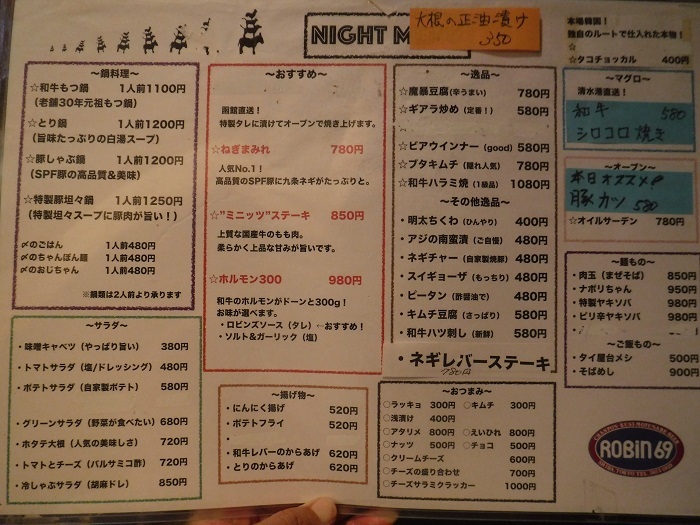 NIGHT M
大根の正油漬け
350
本場韓国!
独自のルートで仕入れた本物!
☆
☆タコチョッカル 400円
～鍋料理～
☆和牛もつ鍋 1人前1100円
(老舗30年元祖もつ鍋)
☆とり鍋 1人前1200円
(旨味たっぷりの白湯スープ)
☆豚しゃぶ鍋 1人前1200円
(SPF豚の高品質&美味)
☆特製豚坦々鍋 1人前1250円
(特製坦々スープに豚肉が旨い!)
〆のごはん 1人前480円
〆のちゃんぽん麺 1人前480円
〆のおじちゃん 1人前480円
※鍋類は2人前より承ります
～サラダ～
・味噌キャベツ(やっぱり旨い) 380円
・トマトサラダ(塩/ドレッシング) 480円
・ポテトサラダ(自家製ポテト) 580円
・グリーンサラダ(野菜が食べたい) 680円
・ホタテ大根(人気の美味しさ) 720円
・トマトとチーズ(バルサミコ酢) 720円
・冷しゃぶサラダ(胡麻ドレ) 850円
～おすすめ～
函館直送!
特製タレに漬けてオーブンで焼き上げます。
☆ねぎまみれ 780円
人気No.1!
高品質のSPF豚に九条ネギがたっぷりと。
☆"ミニッツ"ステーキ 850円
上質な国産牛のもも肉。
柔らかく上品な甘みが旨いです。
☆ホルモン300 980円
和牛のホルモンがドーンと300g!
お味が選べます。
・ロビンズソース(タレ)←おすすめ!
・ソルト&ガーリック(塩)
～揚げ物～
・にんにく揚げ 520円
・ポテトフライ 520円
・
・和牛レバーのからあげ 620円
・とりのからあげ 620円
～逸品～
☆麻暴豆腐(辛うまい) 780円
☆ギアラ炒め(定番!) 580円
☆ビアウインナー(good) 580円
☆ブタキムチ(隠れ人気) 780円
☆和牛ハラミ焼(1級品) 1080円
～その他逸品～
・明太ちくわ(ひんやり) 400円
・アジの南蛮漬(ご自慢) 480円
・ネギチャー(自家製焼豚) 480円
・スイギョーザ(もっちり) 480円
・ピータン(酢醤油で) 480円
・キムチ豆腐(さっぱり) 580円
・和牛ハツ刺し(新鮮) 580円
・ネギレバーステーキ
780円
～おつまみ～
○ラッキョ 300円 ○キムチ 300円
○浅漬け 400円
○アタリメ 800円 ○えいひれ 800円
○ナッツ 500円 ○チョコ 500円
○クリームチーズ 600円
○チーズの盛り合わせ 700円
○チーズサラミクラッカー 1000円
～マグロ～
清水港直送!
和牛 580
シロコロ焼き
～オーブン～
本日オススメ
豚カツ 580
☆オイルサーデン 780円
～麺もの～
・肉玉(まぜそば) 850円
・ナポリちゃん 950円
・特製ヤキソバ 980円
・ピリ辛ヤキソバ 980円
・
～ご飯もの～
・タイ屋台メシ 500円
・そばめし 900円
ROBiN 69